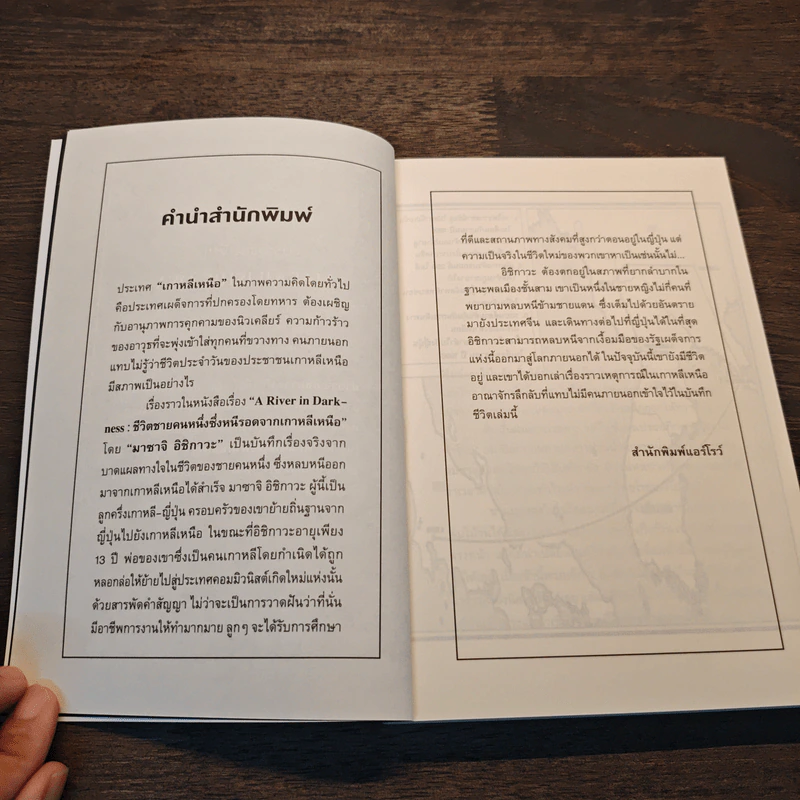 คำนำสำนักพิมพ์
ประเทศ “เกาหลีเหนือ” ในภาพความคิดโดยทั่วไป
คือประเทศเผด็จการที่ปกครองโดยทหาร ต้องเผชิญ
กับอานุภาพการคุกคามของนิวเคลียร์ ความก้าวร้าว
ของอาวุธที่จะพุ่งเข้าใส่ทุกคนที่ขวางทาง คนภายนอก
แทบไม่รู้ว่าชีวิตประจำวันของประชาชนเกาหลีเหนือ
มีสภาพเป็นอย่างไร
เรื่องราวในหนังสือเรื่อง “A River in Dark-
ness : ชีวิตชายคนหนึ่งซึ่งหนีรอดจากเกาหลีเหนือ”
โดย “มาซาจิ อิชิกาวะ” เป็นบันทึกเรื่องจริงจาก
บาดแผลทางใจในชีวิตของชายคนหนึ่ง ซึ่งหลบหนีออก
มาจากเกาหลีเหนือได้สำเร็จ มาซาจิ อิชิกาวะ ผู้นี้เป็น
ลูกครึ่งเกาหลี-ญี่ปุ่น ครอบครัวของเขาย้ายถิ่นฐานจาก
ญี่ปุ่นไปยังเกาหลีเหนือ ในขณะที่อิชิกาวะอายุเพียง
13 ปี พ่อของเขาซึ่งเป็นคนเกาหลีโดยกำเนิดได้ถูก
หลอกล่อให้ย้ายไปสู่ประเทศคอมมิวนิสต์เกิดใหม่แห่งนั้น
ด้วยสารพัดคำสัญญา ไม่ว่าจะเป็นการวาดฝันว่าที่นั่น
มีอาชีพการงานให้ทำมากมาย ลูกๆ จะได้รับการศึกษา
ที่ดีและสถานภาพทางสังคมที่สูงกว่าตอนอยู่ในญี่ปุ่น แต่
ความเป็นจริงในชีวิตใหม่ของพวกเขาหาเป็นเช่นนั้นไม่...
อิชิกาวะ ต้องตกอยู่ในสภาพที่ยากลำบากใน
ฐานะพลเมืองชั้นสาม เขาเป็นหนึ่งในชายหญิงไม่กี่คนที่
พยายามหลบหนีข้ามชายแดน ซึ่งเต็มไปด้วยอันตราย
มายังประเทศจีน และเดินทางต่อไปที่ญี่ปุ่นได้ในที่สุด
อิชิกาวะสามารถหลบหนีจากเงื้อมมือของรัฐเผด็จการ
แห่งนี้ออกมาสู่โลกภายนอกได้ ในปัจจุบันนี้เขายังมีชีวิต
อยู่ และเขาได้บอกเล่าเรื่องราวเหตุการณ์ในเกาหลีเหนือ
อาณาจักรลึกลับที่แทบไม่มีคนภายนอกเข้าใจไว้ในบันทึก
ชีวิตเล่มนี้
สำนักพิมพ์แอร์โรว์